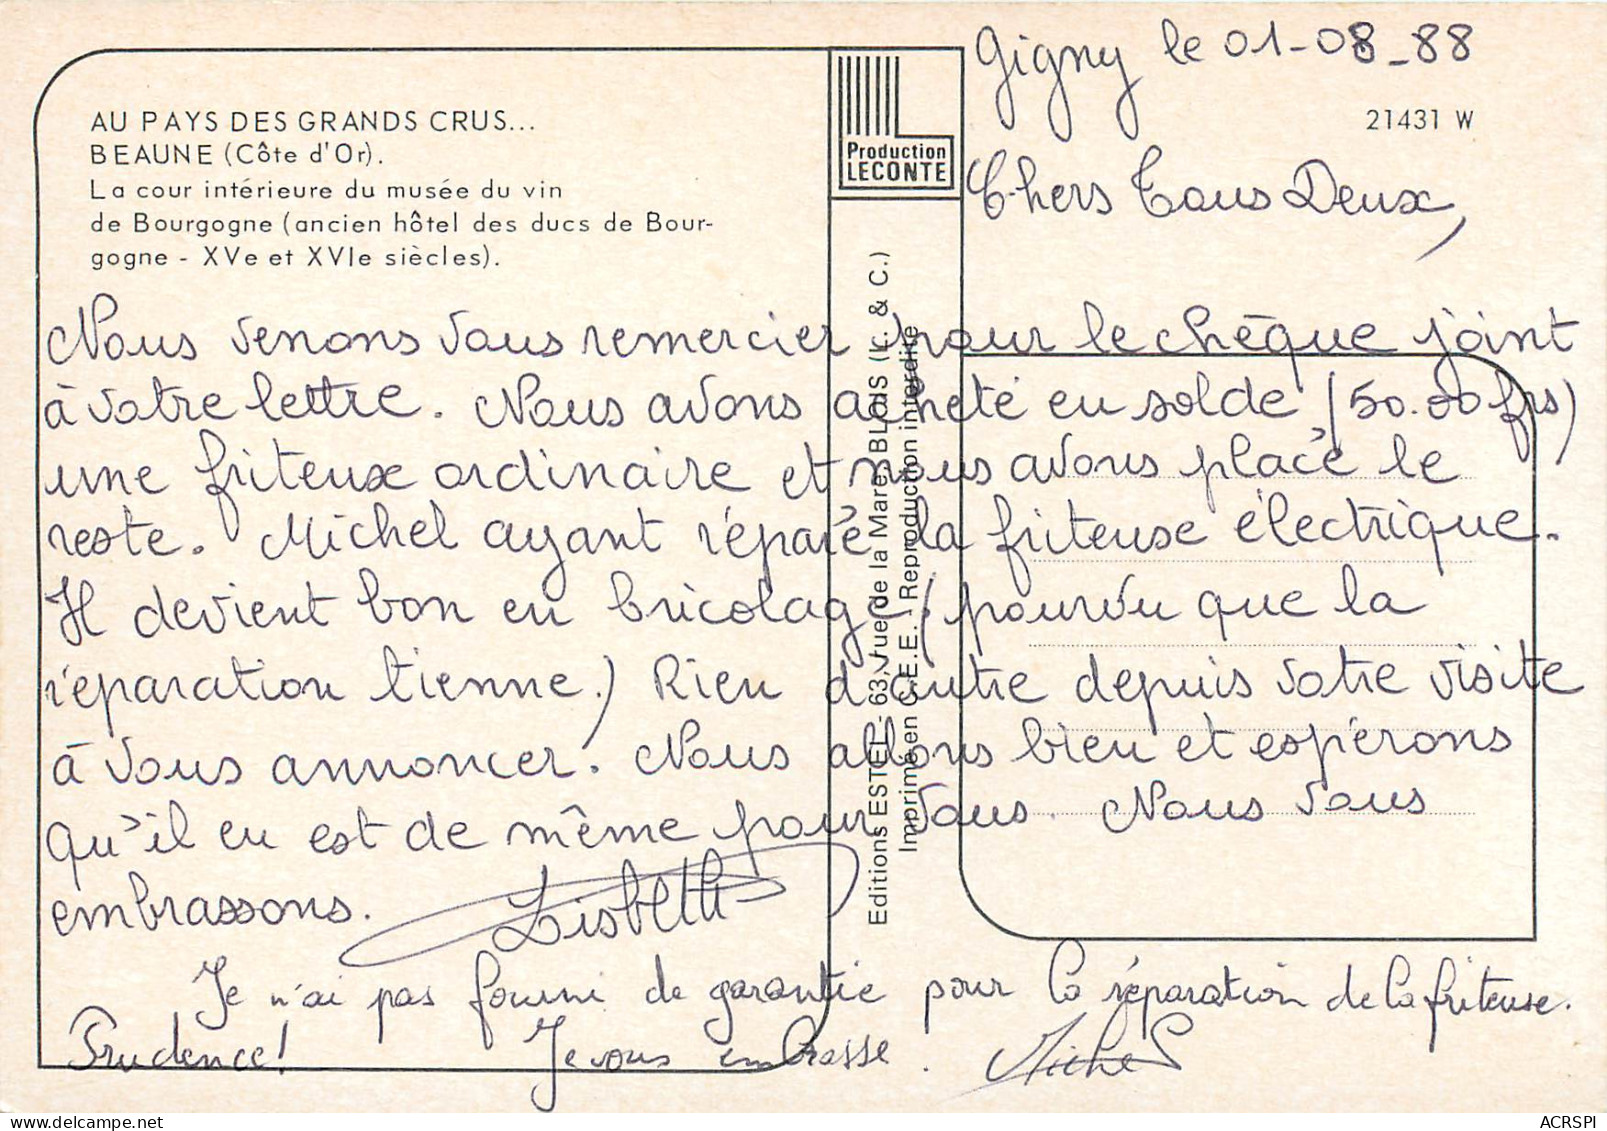 Gigny le 01-08-88
21431 W
AU PAYS DES GRANDS CRUS...
BEAUNE (Côte d'Or).
La cour intérieure du musée du vin
de Bourgogne (ancien hôtel des ducs de Bour-
gogne - XVe et XVIe siècles).
Production
LECONTE
Editions ESTEL - 63, rue de la Mare, BLOIS (L. & C.)
Imprimé en C.E.E. Reproduction interdite
Chers Tous Deux,
Nous venons vous remercier pour le chèque joint
à votre lettre. Nous avons acheté en solde (50.00 frs)
une friteuse ordinaire et nous avons placé le
reste. Michel ayant réparé la friteuse électrique.
Il devient bon en bricolage (pourvu que la
réparation tienne.) Rien d'autre depuis votre visite
à vous annoncer. Nous allons bien et espérons
qu'il en est de même pour vous. Nous vous
embrassons. Lisbeth
Je n'ai pas fourni de garantie pour la réparation de la friteuse.
Prudence! Je vous embrasse. Michel
ACRSPI